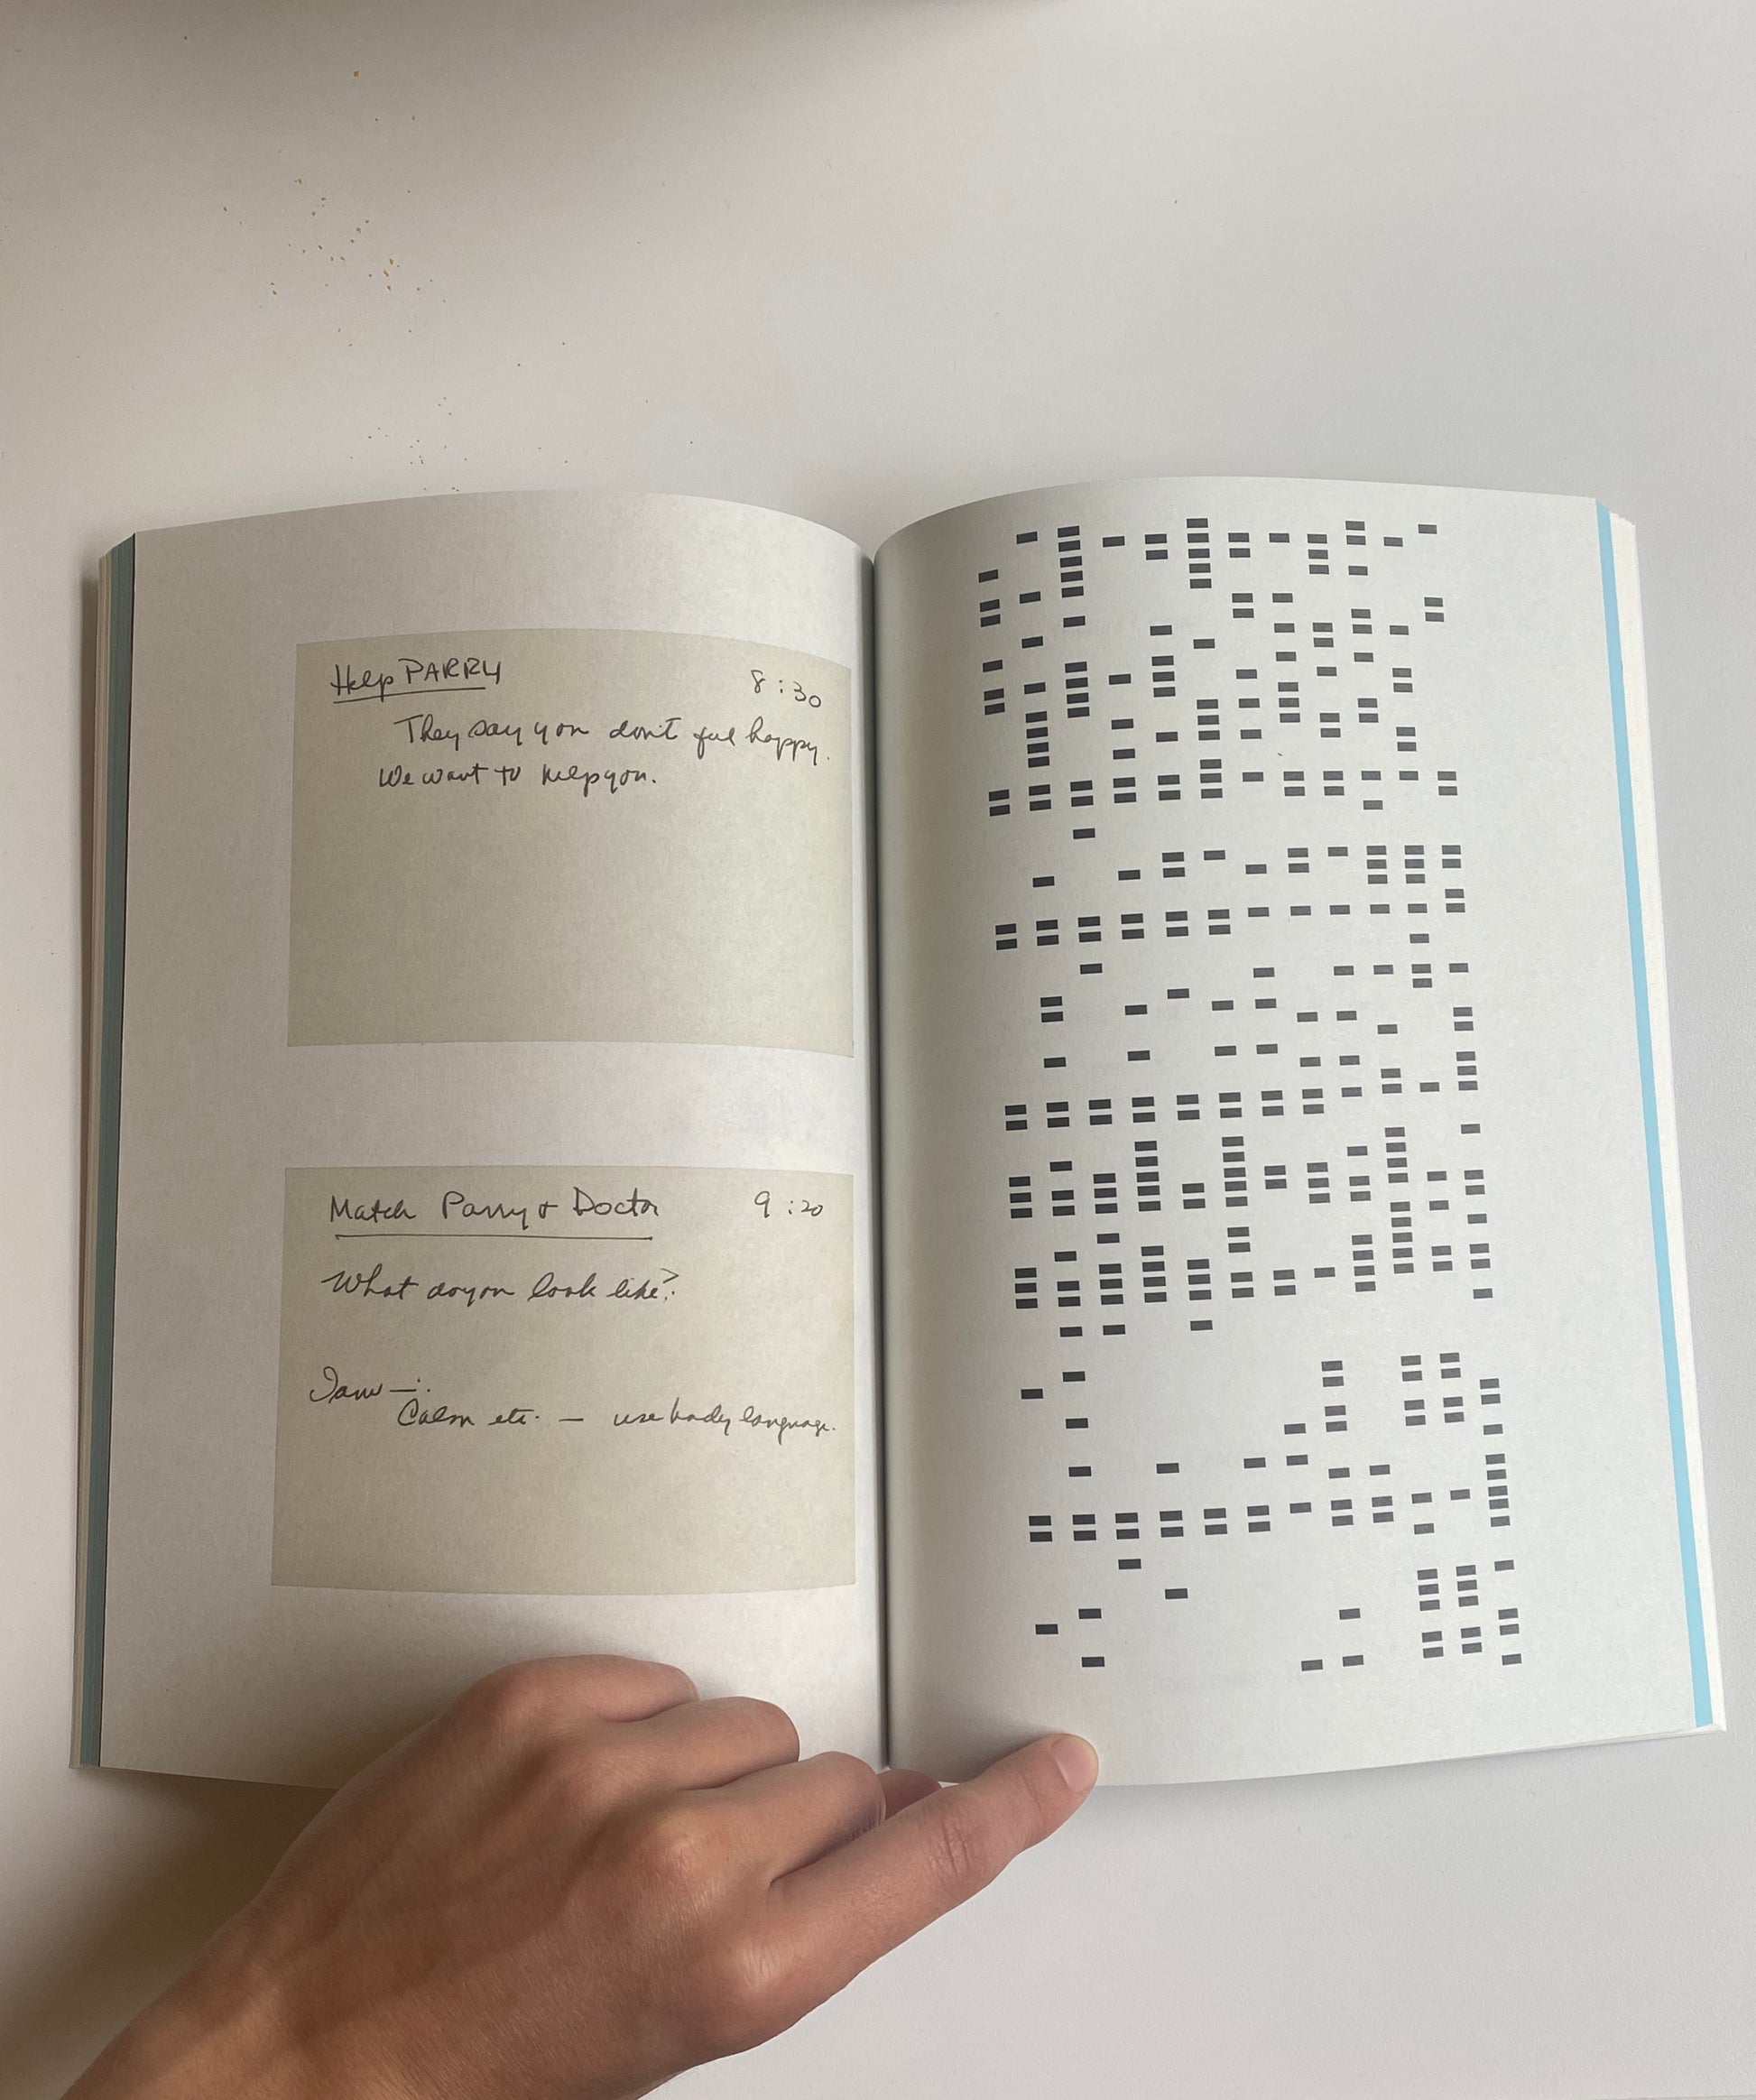 Help PARRY 8:30
They say you don't feel happy.
We want to help you.
Match Parry & Doctor 9:20
What do you look like?
Calm etc. — use body language.